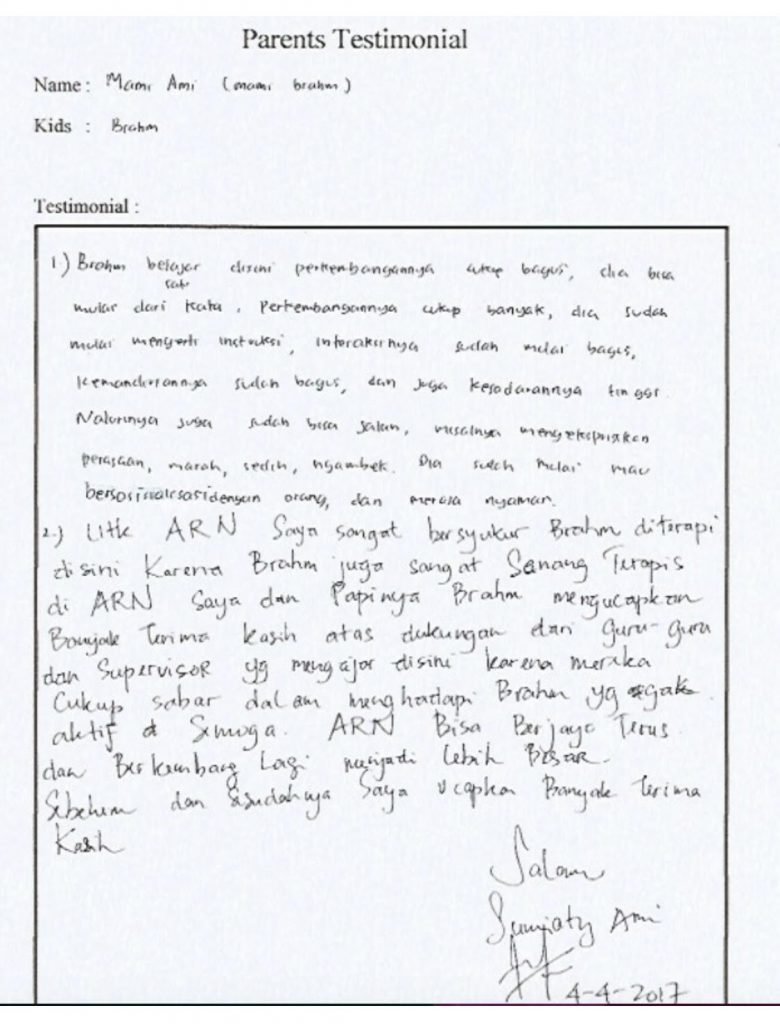 Parents Testimonial
Name : Mami Ami (mami brahm)
Kids : Brahm
Testimonial :
1.) Brahm belajar disini perkembangannya cukup bagus, dia bisa
satu
mulai dari kata. Perkembangannya cukup banyak, dia sudah
mulai mengerti instruksi, interaksinya sudah mulai bagus,
kemandiriannya sudah bagus, dan juga kesadarannya tinggi.
Nalurinya juga sudah bisa jalan, misalnya mengekspresikan
perasaan, marah, sedih, ngambek. Dia sudah mulai mau
bersosialisasi dengan orang, dan merasa nyaman.
2.) Utk ARN Saya sangat bersyukur Brahm diterapi
disini Karena Brahm juga sangat Senang Terapis
di ARN Saya dan Papinya Brahm mengucapkan
Banyak Terima kasih atas dukungan dari Guru-guru
dan Supervisor yg mengajar disini karena meraka
Cukup sabar dalam menghadapi Brahm yg agak
aktif Semoga. ARN Bisa Berjaya Terus
dan Berkembang Lagi menjadi lebih Besar.
Sebelum dan Sesudahnya Saya ucapkan Banyak Terima
Kasih
Salam
Sumiaty Ami
4-4-2017